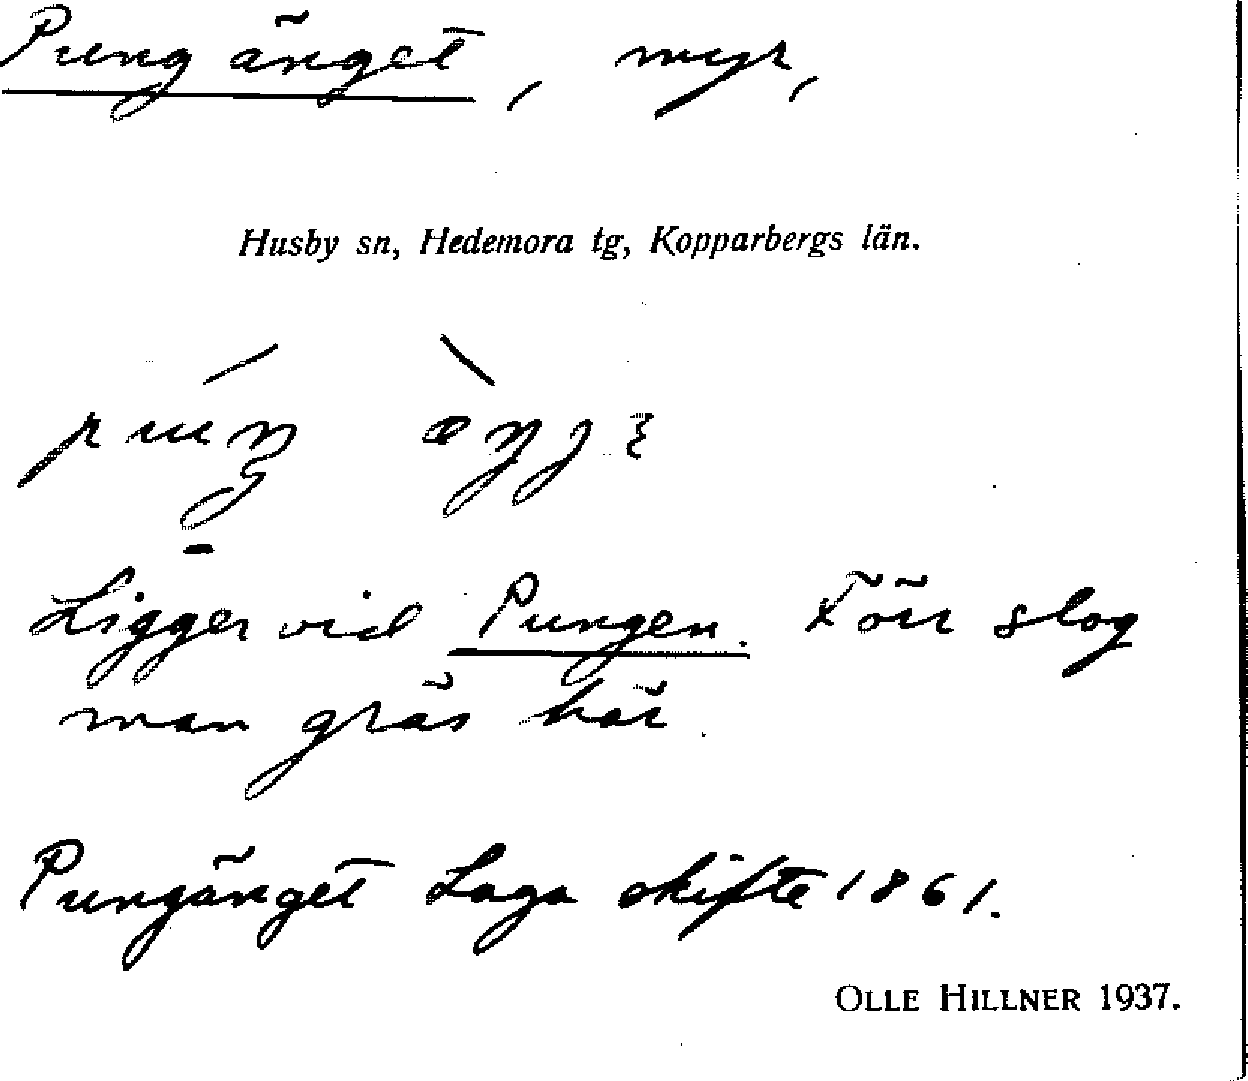 Pungänget, myr,
Husby sn, Hedemora tg, Kopparbergs län.
Ligger vid Pungen. Förr slog
man gräs här.
Pungänget Laga skifte 1861.
OLLE HILLNER 1937.